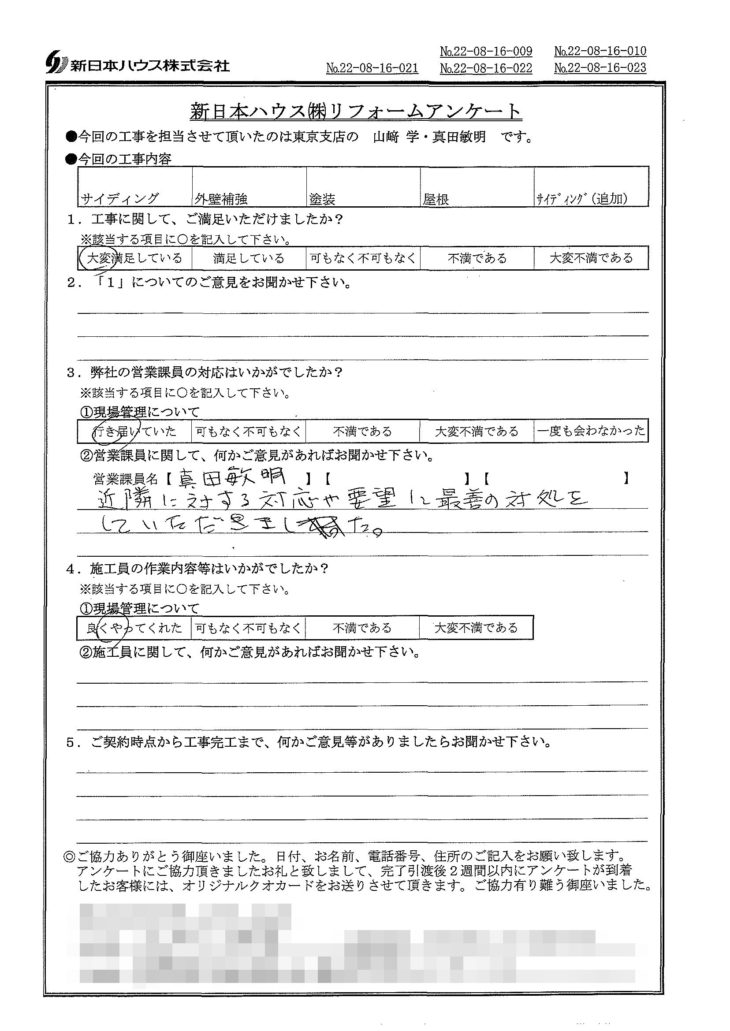 新日本ハウス株式会社
№22-08-16-009 №22-08-16-010
№22-08-16-021 №22-08-16-022 №22-08-16-023
新日本ハウス㈱リフォームアンケート
●今回の工事を担当させて頂いたのは東京支店の 山﨑 学・真田敏明 です。
●今回の工事内容
サイディング 外壁補強 塗装 屋根 ｻｲﾃﾞｨﾝｸﾞ(追加)
1．工事に関して、ご満足いただけましたか？
※該当する項目に○を記入して下さい。
大変満足している 満足している 可もなく不可もなく 不満である 大変不満である
2．「1」についてのご意見をお聞かせ下さい。
3．弊社の営業課員の対応はいかがでしたか？
※該当する項目に○を記入して下さい。
①現場管理について
行き届いていた 可もなく不可もなく 不満である 大変不満である 一度も会わなかった
②営業課員に関して、何かご意見があればお聞かせ下さい。
営業課員名【真田敏明 】【 】【 】
近隣に対する対応や要望に最善の対処を
していただきました。
4．施工員の作業内容等はいかがでしたか？
※該当する項目に○を記入して下さい。
①現場管理について
良くやってくれた 可もなく不可もなく 不満である 大変不満である
②施工員に関して、何かご意見があればお聞かせ下さい。
5．ご契約時点から工事完工まで、何かご意見等がありましたらお聞かせ下さい。
◎ご協力ありがとう御座いました。日付、お名前、電話番号、住所のご記入をお願い致します。
アンケートにご協力頂きましたお礼と致しまして、完了引渡後２週間以内にアンケートが到着
したお客様には、オリジナルクオカードをお送りさせて頂きます。ご協力有り難う御座いました。